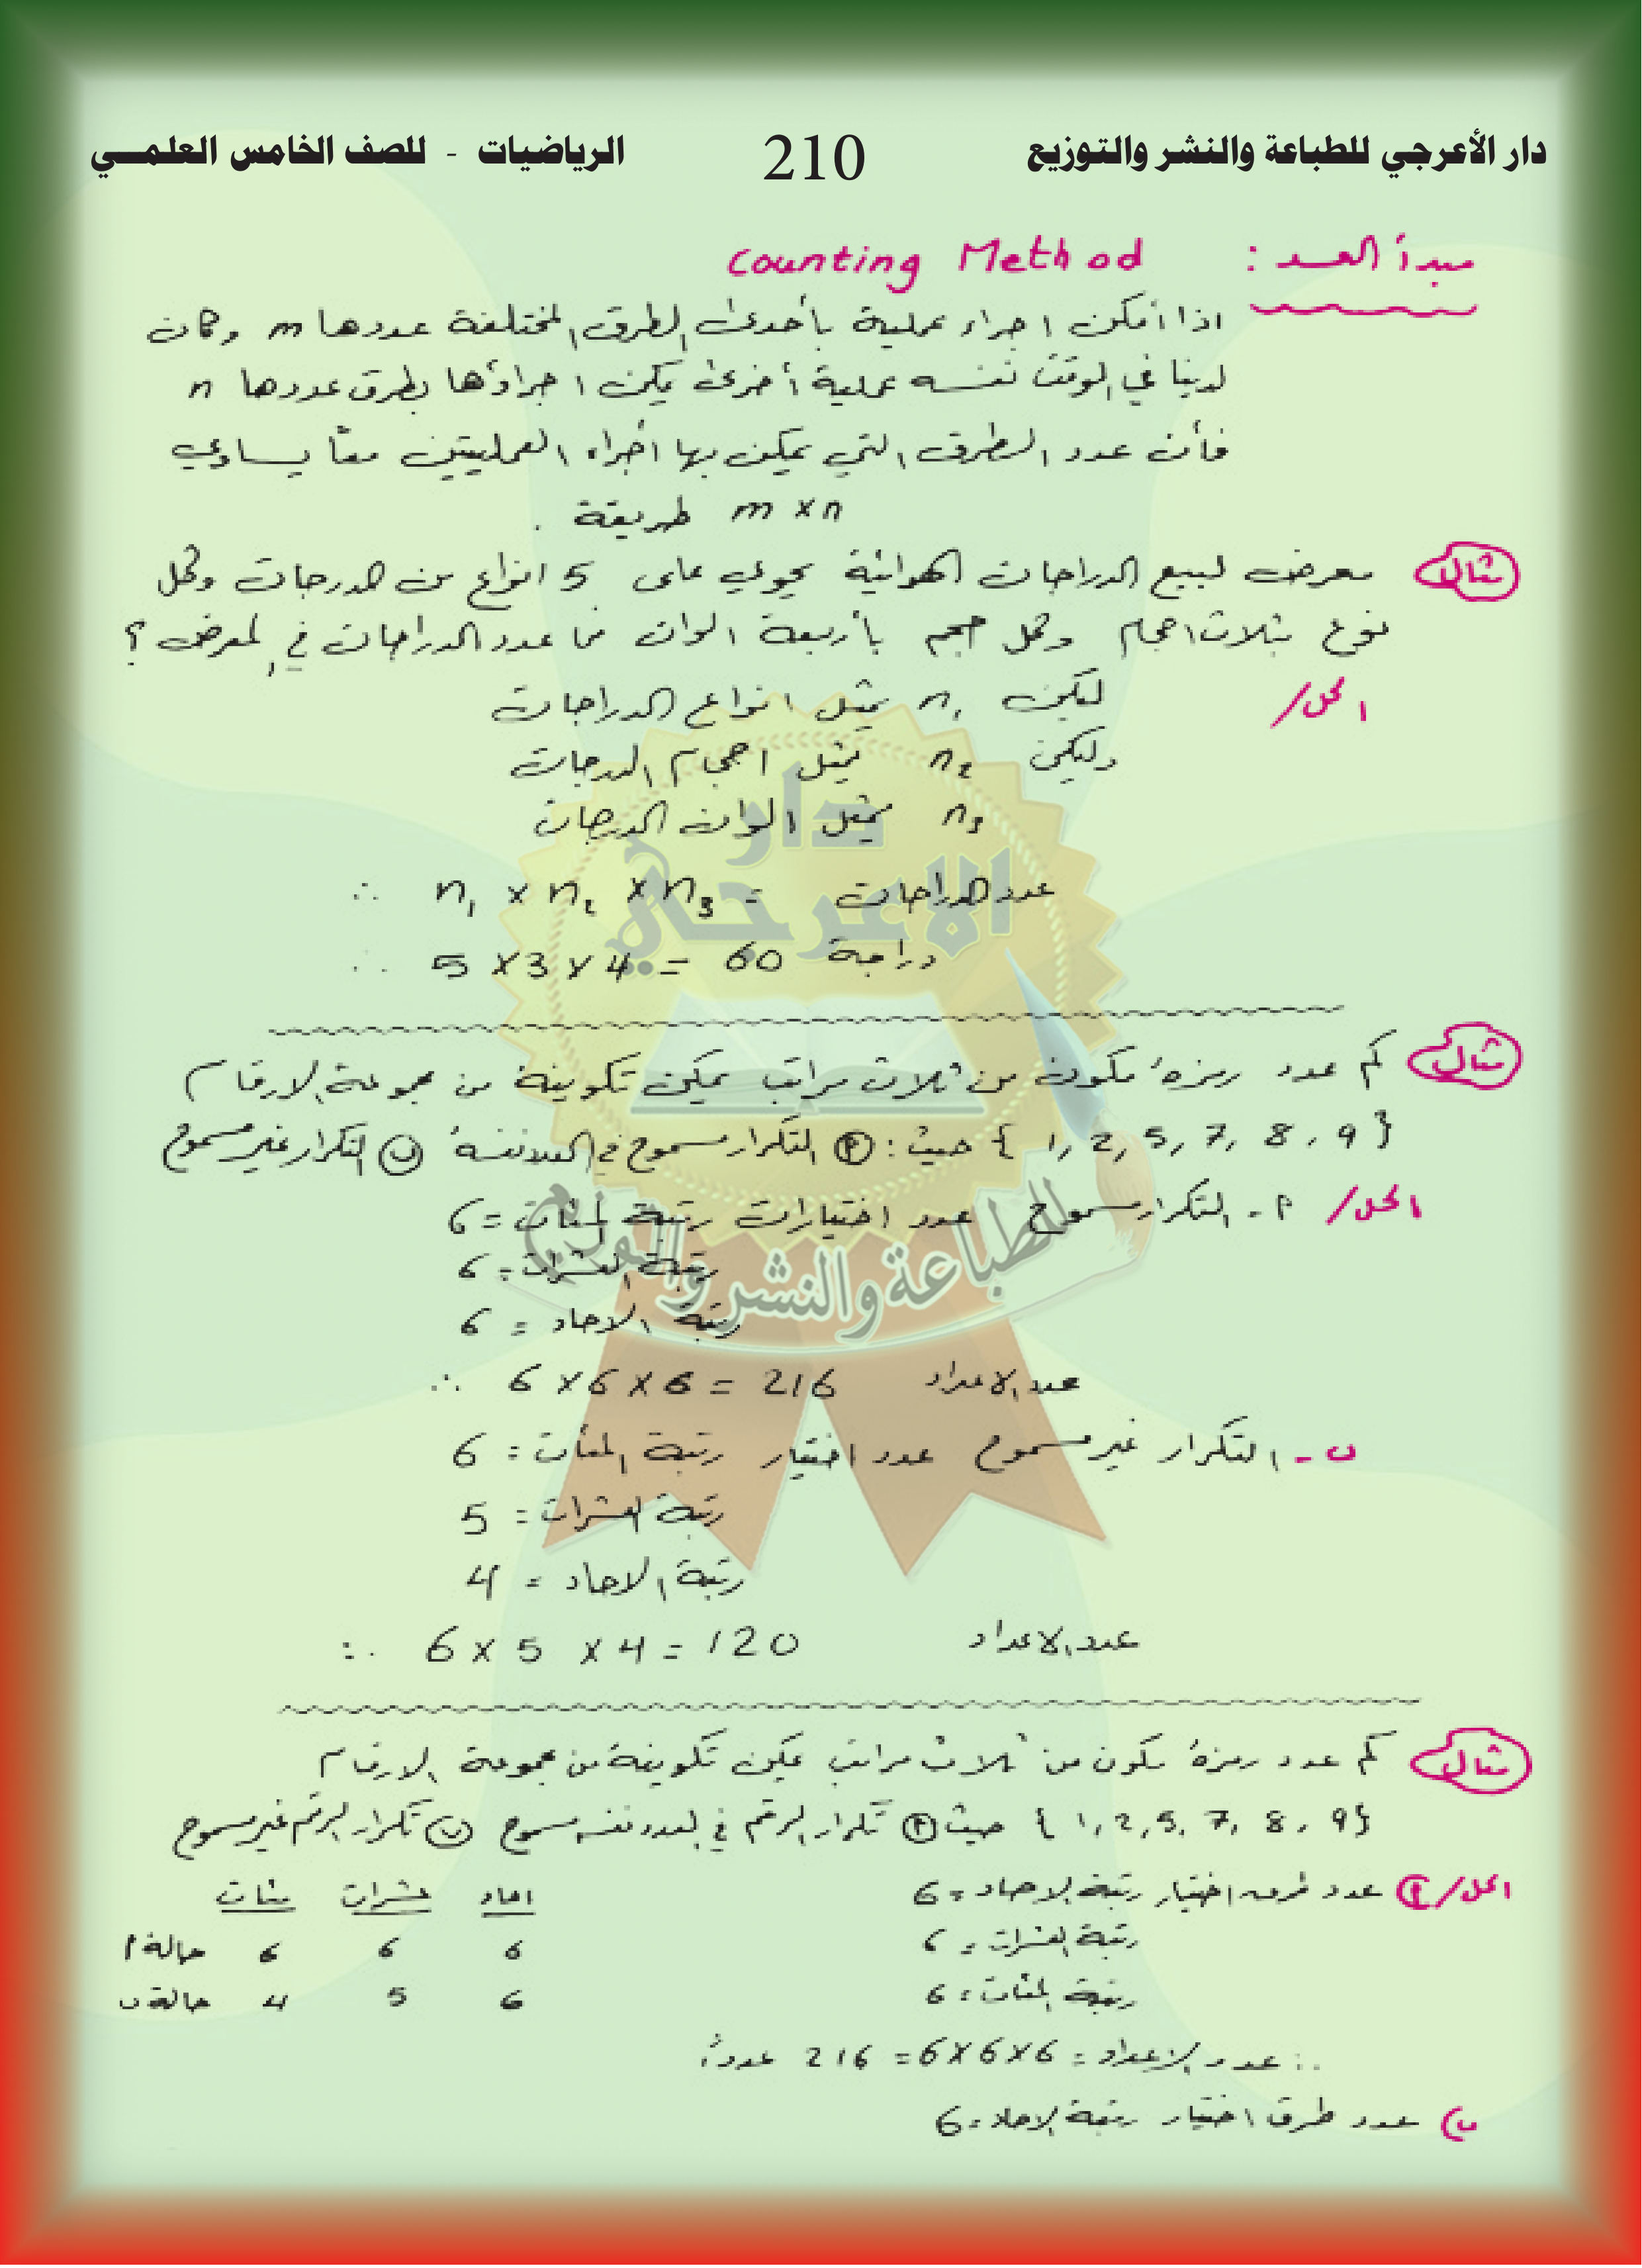 دار الأعرجي للطباعة والنشر والتوزيع 210 الرياضيات - للصف الخامس العلمـــي
مبدأ العد : Counting Method
اذا أمكن اجراء عملية بأحدى الطرق المختلفة عددها m وكان
لدينا في الوقت نفسه عملية أخرى يمكن اجراؤها بطرق عددها n
فأن عدد الطرق التي يمكن بها أجراء العمليتين معاً يساوي
m × n طريقة .
مثال معرض لبيع الدراجات الهوائية يحوي على 5 انواع من الدرجات ولكل
نوع بثلاث احجام ولكل حجم بأربعة الوان فما عدد الدراجات في المعرض ؟
الحل/ ليكن n1 يمثل انواع الدراجات
وليكن n2 يمثل احجام الدرجات
n3 يمثل الوان الدرجات
عدد الدراجات = n1 × n2 × n3 ∴
∴ 5 × 3 × 4 = 60 دراجة
مثال كم عدد رمزهُ مكون من ثلاث مراتب يمكن تكوينة من مجموعة الارقام
{ 1, 2, 5, 7, 8, 9 } حيث : أ التكرار مسموح في العدد نفسهُ ب التكرار غير مسموح
الحل/ أ - التكرار مسموح عدد اختيارات رتبة المئات = 6
رتبة العشرات = 6
رتبة الاحاد = 6
∴ 6 × 6 × 6 = 216 عدد الاعداد
ب - التكرار غير مسموح عدد اختيار رتبة المئات = 6
رتبة العشرات = 5
رتبة الاحاد = 4
∴ 6 × 5 × 4 = 120 عدد الاعداد
مثال كم عدد رمزهُ مكون من ثلاث مراتب يمكن تكوينة من مجموعة الارقام
{ 1, 2, 5, 7, 8, 9 } حيث أ تكرار الرقم في العدد نفسه مسموح ب تكرار الرقم غير مسموح
الحل/ أ عدد طرق اختيار رتبة الاحاد = 6
رتبة العشرات = 6
رتبة المئات = 6
احاد عشرات مئات
6 6 6 حالة أ
6 5 4 حالة ب
∴ عدد الاعداد = 6×6×6 = 216 عدداً
ب) عدد طرق اختيار رتبة الاحاد = 6
دار
الاعرجي
للطباعة والنشر والتوزيع